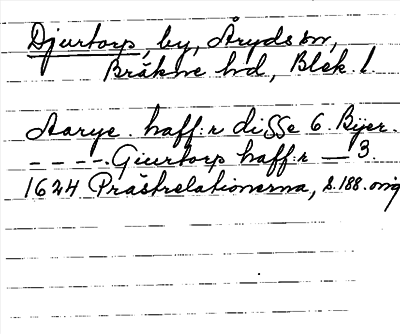 Djurtorp, by, Åryds sn,
Bräkne hd, Blek. l.
Aarye. haff:r disse 6. Byer.
- - - -. Giurtorp haff:r — 3.
1624 Prästrelationerna, s. 188. orig